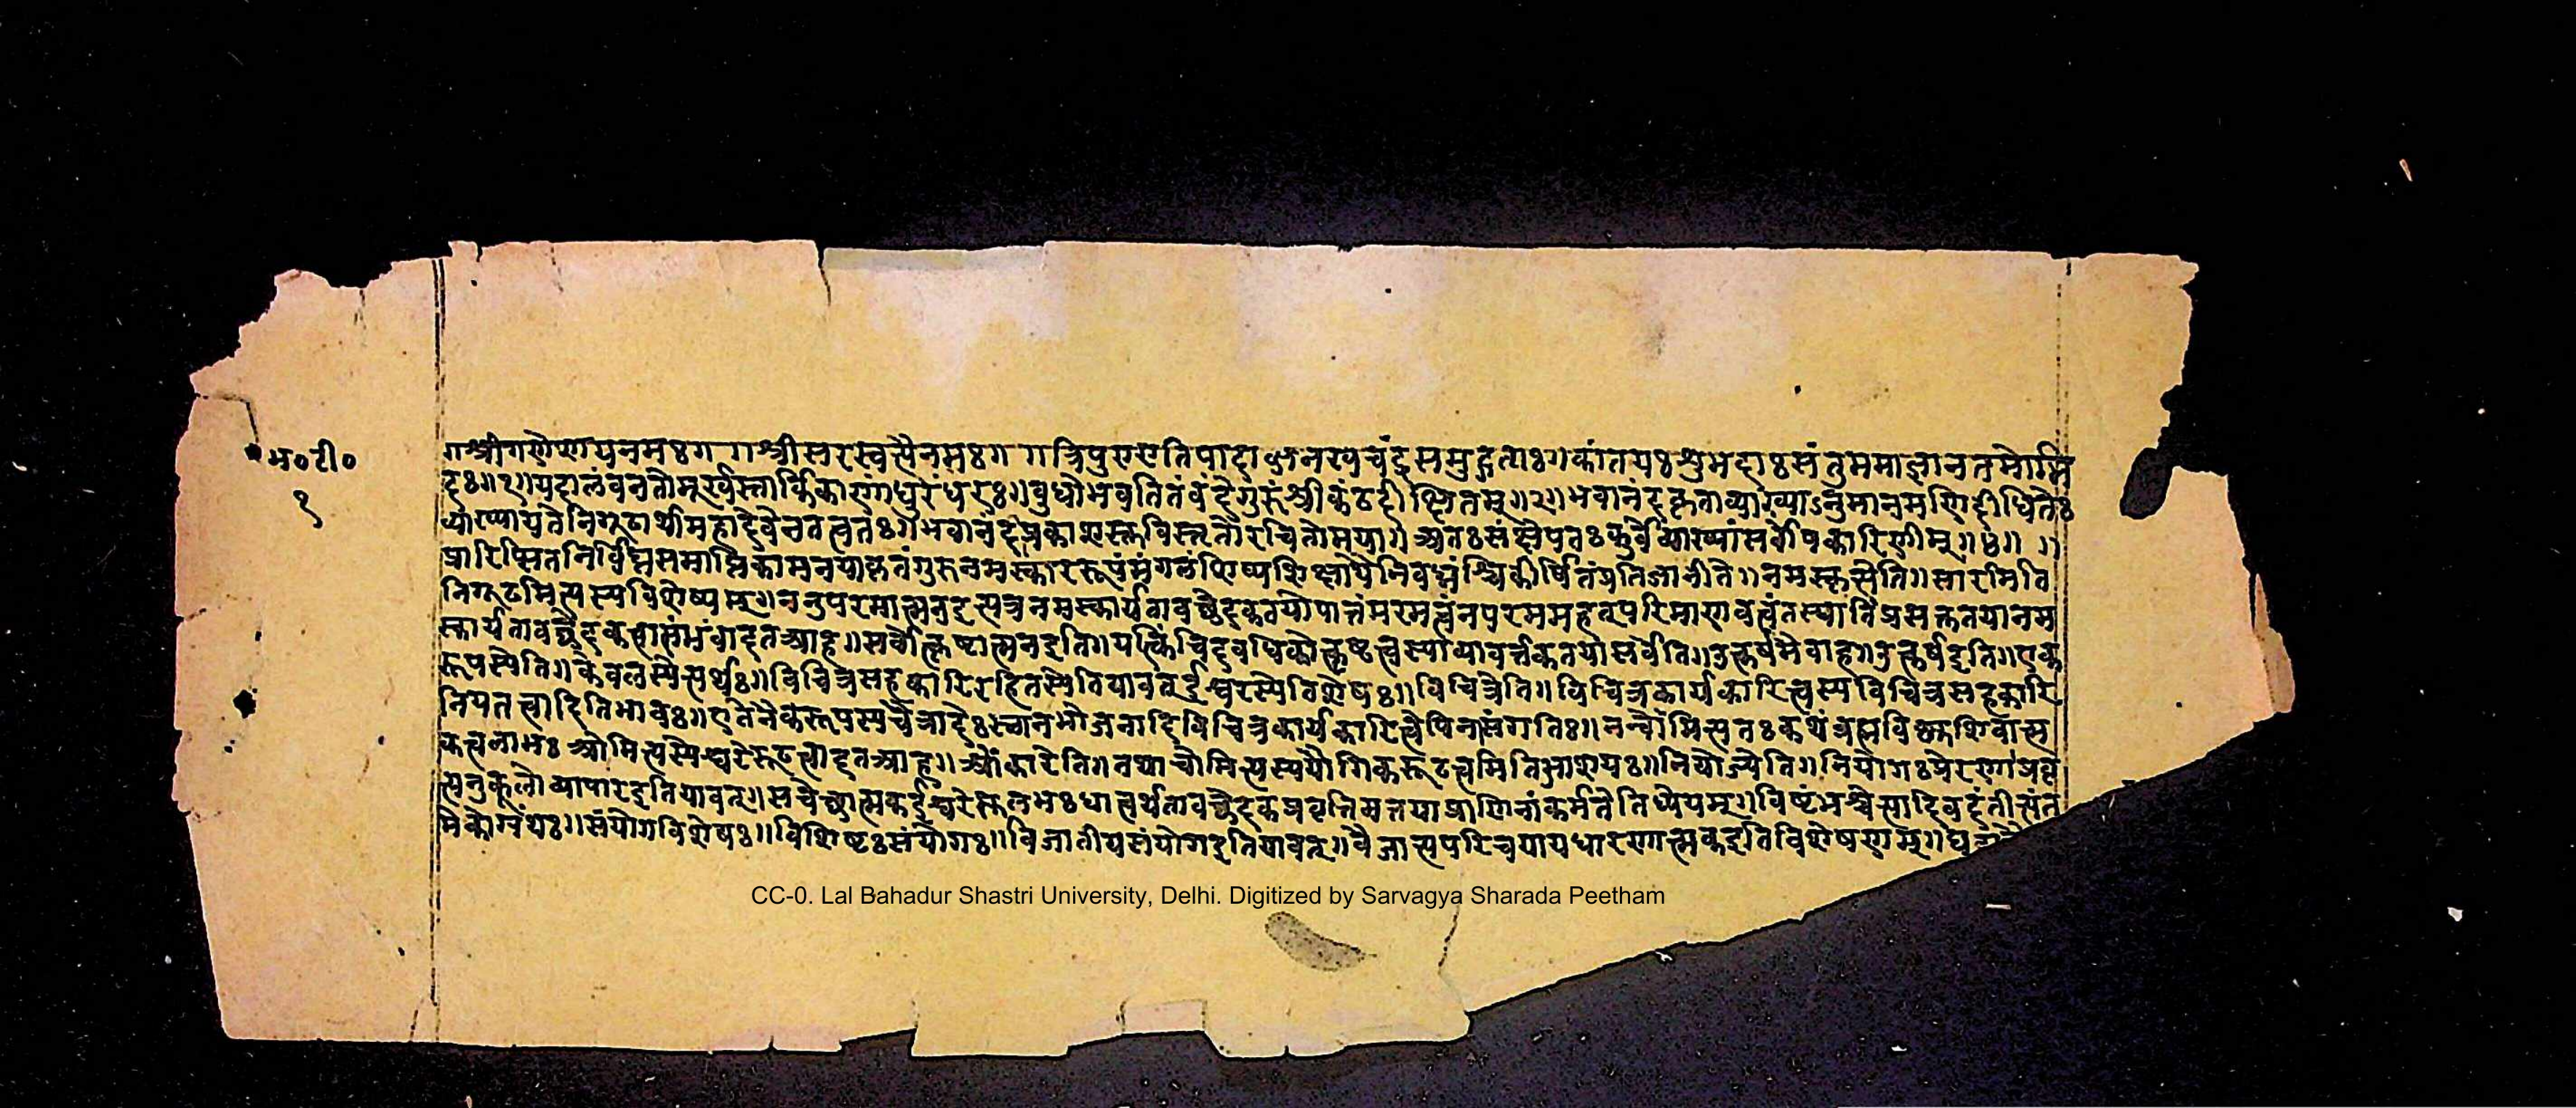 भ०टी०
१
॥श्रीगणेशायनमः॥ ॥श्रीसरस्वत्यैनमः॥ ॥त्रिपुरारातिपादाब्जनखचंद्रसमुद्गताः॥कांतयःशुभदाःसंतुममाज्ञानतमोभि
दः॥१॥यदालंबनतोमूर्खस्तार्किकाणांधुरंधरः॥बुधोभवतितंवंदेगुरुंश्रीकंठदीक्षितम्॥२॥भवानंदकृताव्याख्याऽनुमानमणिदीधितेः
व्याख्यायतेनिगूढार्थामहादेवेनतत्वतः॥भवानंदप्रकाशस्तुविस्तृतोरचितोमया॥अतःसंक्षेपतःकुर्वेव्याख्यांसर्वोपकारिणीम्॥४॥ ॥
प्रारिप्सितनिर्विघ्नसमाप्तिकामनयाकृतंगुरुनमस्काररूपंमंगलंशिष्यशिक्षार्थंनिबध्नंश्चिकीर्षितंप्रतिजानीते॥नमस्कृत्येति॥सारमिति
निगूढमित्यस्यविशेष्यम्॥ननुपरमात्मनइत्यत्रनमस्कार्यतावच्छेदकतयोपात्तंपरमत्वंनपरममहत्परिमाणवत्वंतस्यातिप्रसक्ततयानम
स्कार्यतावच्छेदकत्वासंभवादतआह॥सर्वोत्कृष्टात्मनइति॥यत्किंचिदवधिकोत्कृष्टत्वस्याव्यावर्त्तकतयासर्वेति॥उत्कर्षमेवाह॥उत्कर्षइति॥एक
रूपस्येति॥केवलस्येत्यर्थः॥विचित्रसहकारिरहितस्येतियावत्ईश्वरस्येतिशेषः॥विचित्रेति॥विचित्रकार्यकारित्वस्यविचित्रसहकारि
नियतत्वादितिभावः॥एतेनैकरूपस्यचैत्रादेःस्थानभोजनादिविचित्रकार्यकारित्वेपिनासंगतिः॥नन्वोमित्यतःकथंब्रह्मविष्णुशिवात्म
कत्वलाभःओमित्यस्येश्वरेरूढत्वादतआह॥ओंकारेति॥तथाचोमित्यस्ययौगिकरूढत्वमितिभावः॥नियोज्येति॥नियोगःप्रेरणाप्रवृ
त्यनुकूलोव्यापारइतियावत्॥सचेच्छात्मकईश्वरेसुलभःधात्वर्थतावच्छेदकप्रवृत्तिमत्तयाप्राणिनांकर्मतेतिध्येयम्॥विष्टंभश्चेत्यादिवदंतीत्यंत
मेकोग्रंथः॥संयोगविशेषः॥विशिष्टःसंयोगः॥विजातीयसंयोगइतियावत्॥वैजात्यपरिचयायधारणात्मकइतिविशेषणम्॥
CC-0. Lal Bahadur Shastri University, Delhi. Digitized by Sarvagya Sharada Peetham